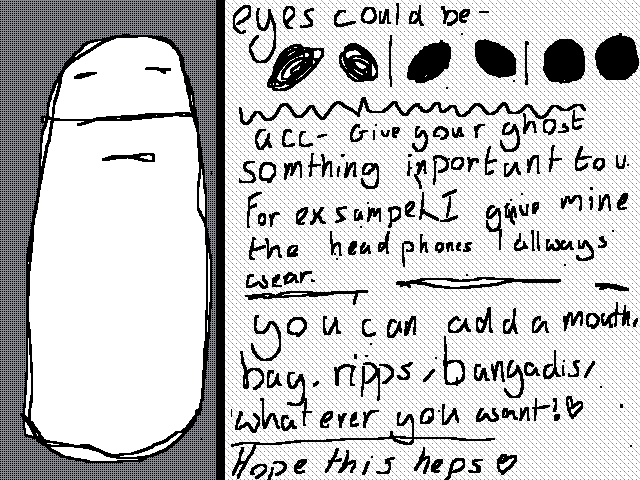 eyes could be-
acc- Give your ghost
somthing inportant to u.
For exsampel I give mine
the headphones I allways
wear.
you can add a mouth,
bag, ripps, bangadis,
whatever you want!♡
Hope this heps♡